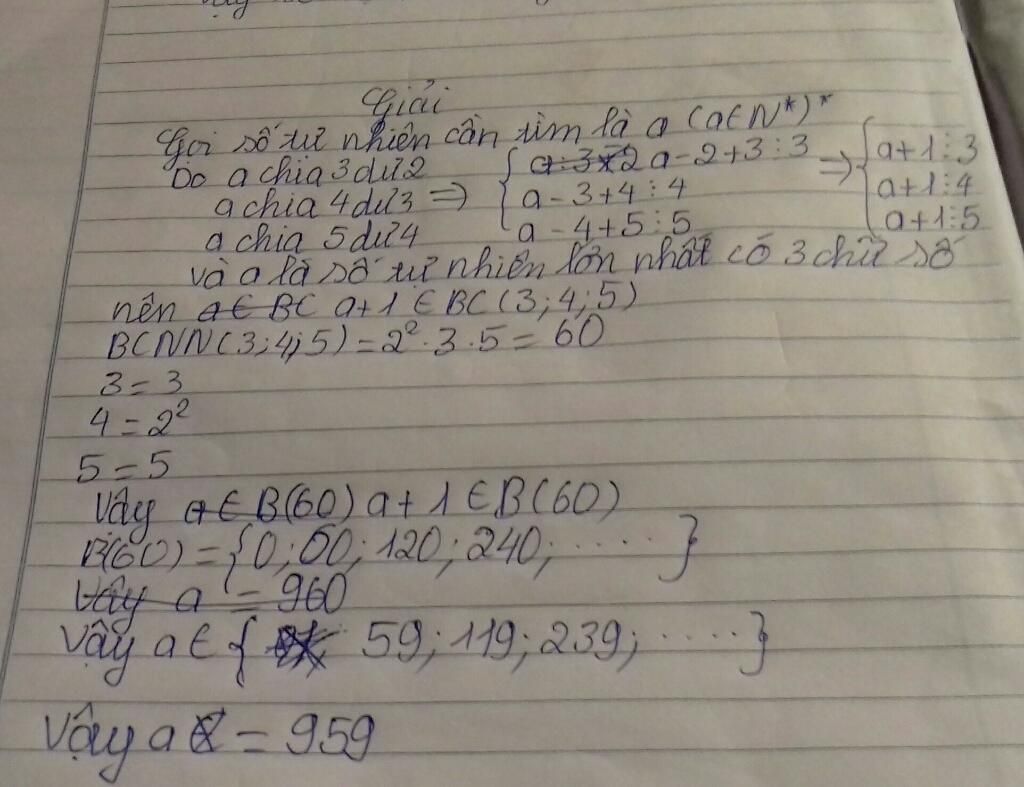 Giải
Gọi số tự nhiên cần tìm là a (a∈N*)*
Do a chia 3 dư 2
a chia 4 dư 3 ⇒ { a-2+3⋮3 ⇒ { a+1⋮3
a-3+4⋮4 a+1⋮4
a chia 5 dư 4 a-4+5⋮5 a+1⋮5
và a là số tự nhiên lớn nhất có 3 chữ số
nên a∈ BC a+1 ∈ BC(3;4;5)
BCNN(3;4;5) = 2².3.5 = 60
3 = 3
4 = 2²
5 = 5
Vậy a∈B(60) a+1∈B(60)
B(60) = {0;60;120;240;.....}
Vậy a = 960
Vậy a∈ { 59;119;239;.....}
Vậy a = 959